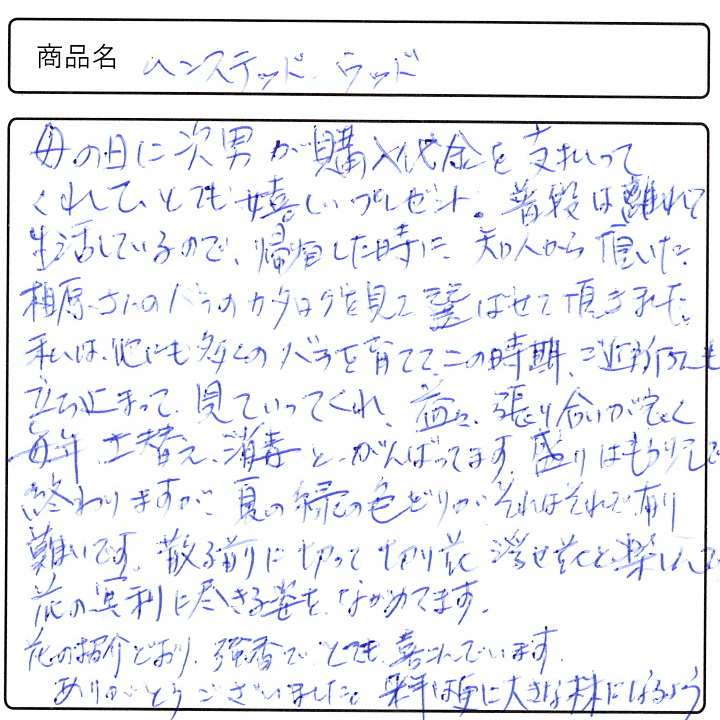 商品名 ヘンステッド ウッド
母の日に次男が購入代金を支払って
くれて、とても嬉しいプレゼント。普段は離れて
生活しているので、帰宅した時に、知人から頂いた
相原さんのバラのカタログを見て選ばせて頂きました。
私は、他にも多くのバラを育てて、この時期、ご近所でも
立ち止まって、見ていってくれ、益々、張り合いが良く
毎年、土替え、消毒と、がんばってます。盛りはもう
終わりますが、夏の緑の色どりがそれはそれで有り
難いです。散る前に切って切り花、浮せ花と楽しんで
花の冥利に尽きる姿を、ながめてます。
花の紹介どおり、強香でとても喜んでいます。
ありがとうございました。来年は更に大きな株になるよう